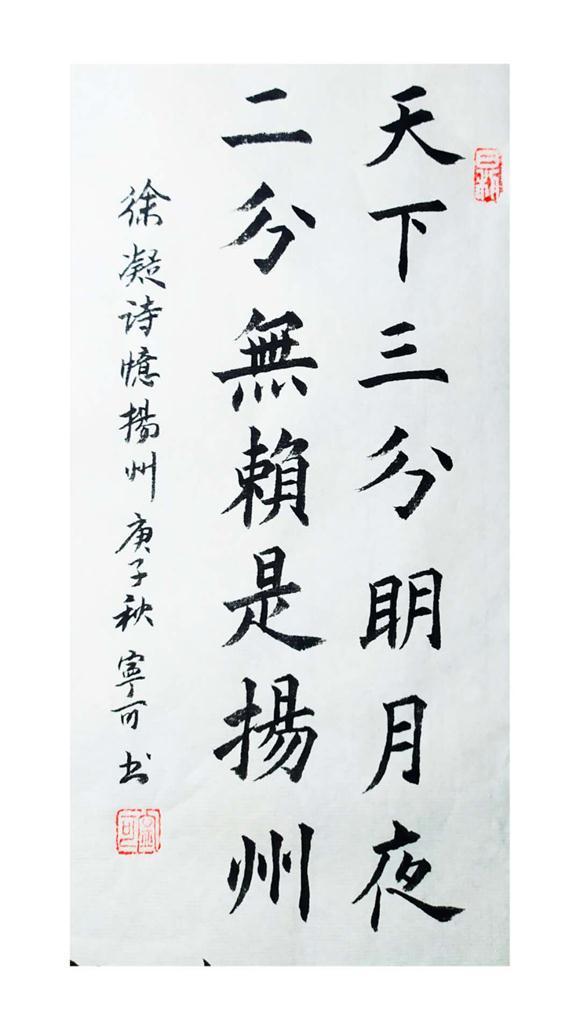 天下三分明月夜
二分無賴是揚州
徐凝诗憶揚州 庚子秋 寧可书
寧可